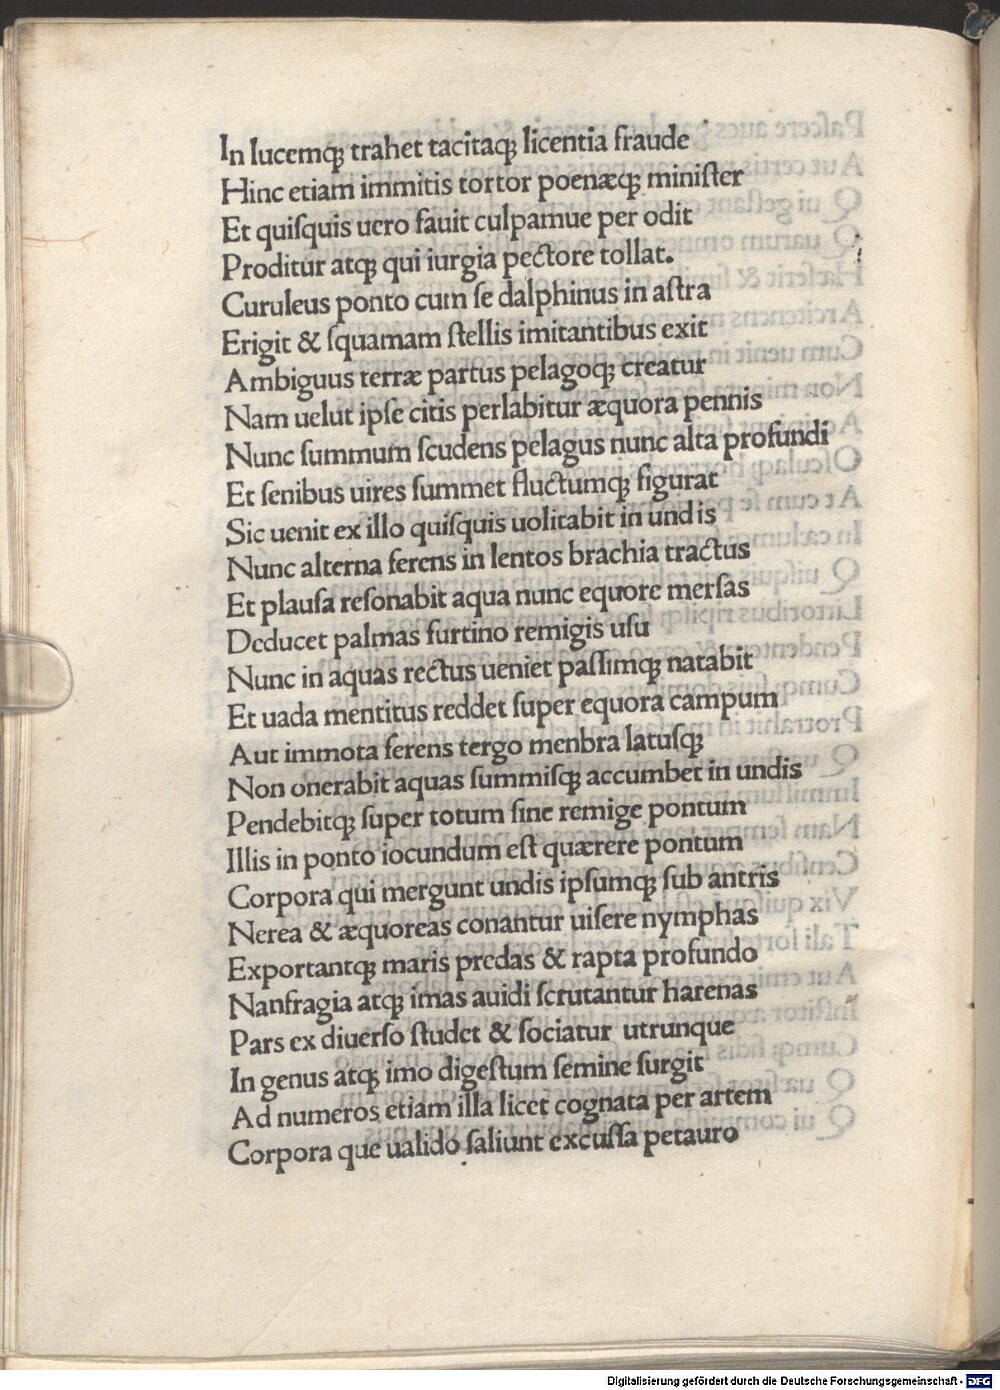 In lucemq; trahet tacitaq; licentia fraude
Hinc etiam immitis tortor poenæq; miniſter
Et quiſquis uero fauit culpamue per odit
Proditur atq; qui iurgia pectore tollat.
Curuleus ponto cum ſe dalphinus in aſtra
Erigit & ſquamam ſtellis imitantibus exit
Ambiguus terræ partus pelagoq; creatur
Nam uelut ipſe citis perlabitur æquora pennis
Nunc ſummum ſcudens pelagus nunc alta profundi
Et ſenibus uires ſummet fluctumq; figurat
Sic uenit ex illo quiſquis uolitabit in undis
Nunc alterna ferens in lentos brachia tractus
Et plauſa reſonabit aqua nunc equore merſas
Deducet palmas furtino remigis uſu
Nunc in aquas rectus ueniet paſſimq; natabit
Et uada mentitus reddet ſuper equora campum
Aut immota ferens tergo menbra latuſq;
Non onerabit aquas ſummiſq; accumbet in undis
Pendebitq; ſuper totum ſine remige pontum
Illis in ponto iocundum eſt quærere pontum
Corpora qui mergunt undis ipſumq; ſub antris
Nerea & æquoreas conantur uiſere nymphas
Exportantq; maris predas & rapta profundo
Nanfragia atq; imas auidi ſcrutantur harenas
Pars ex diuerſo ſtudet & ſociatur utrunque
In genus atq; imo digeſtum ſemine ſurgit
Ad numeros etiam illa licet cognata per artem
Corpora que ualido ſaliunt excuſſa petauro
Digitalisierung gefördert durch die Deutsche Forschungsgemeinschaft - DFG